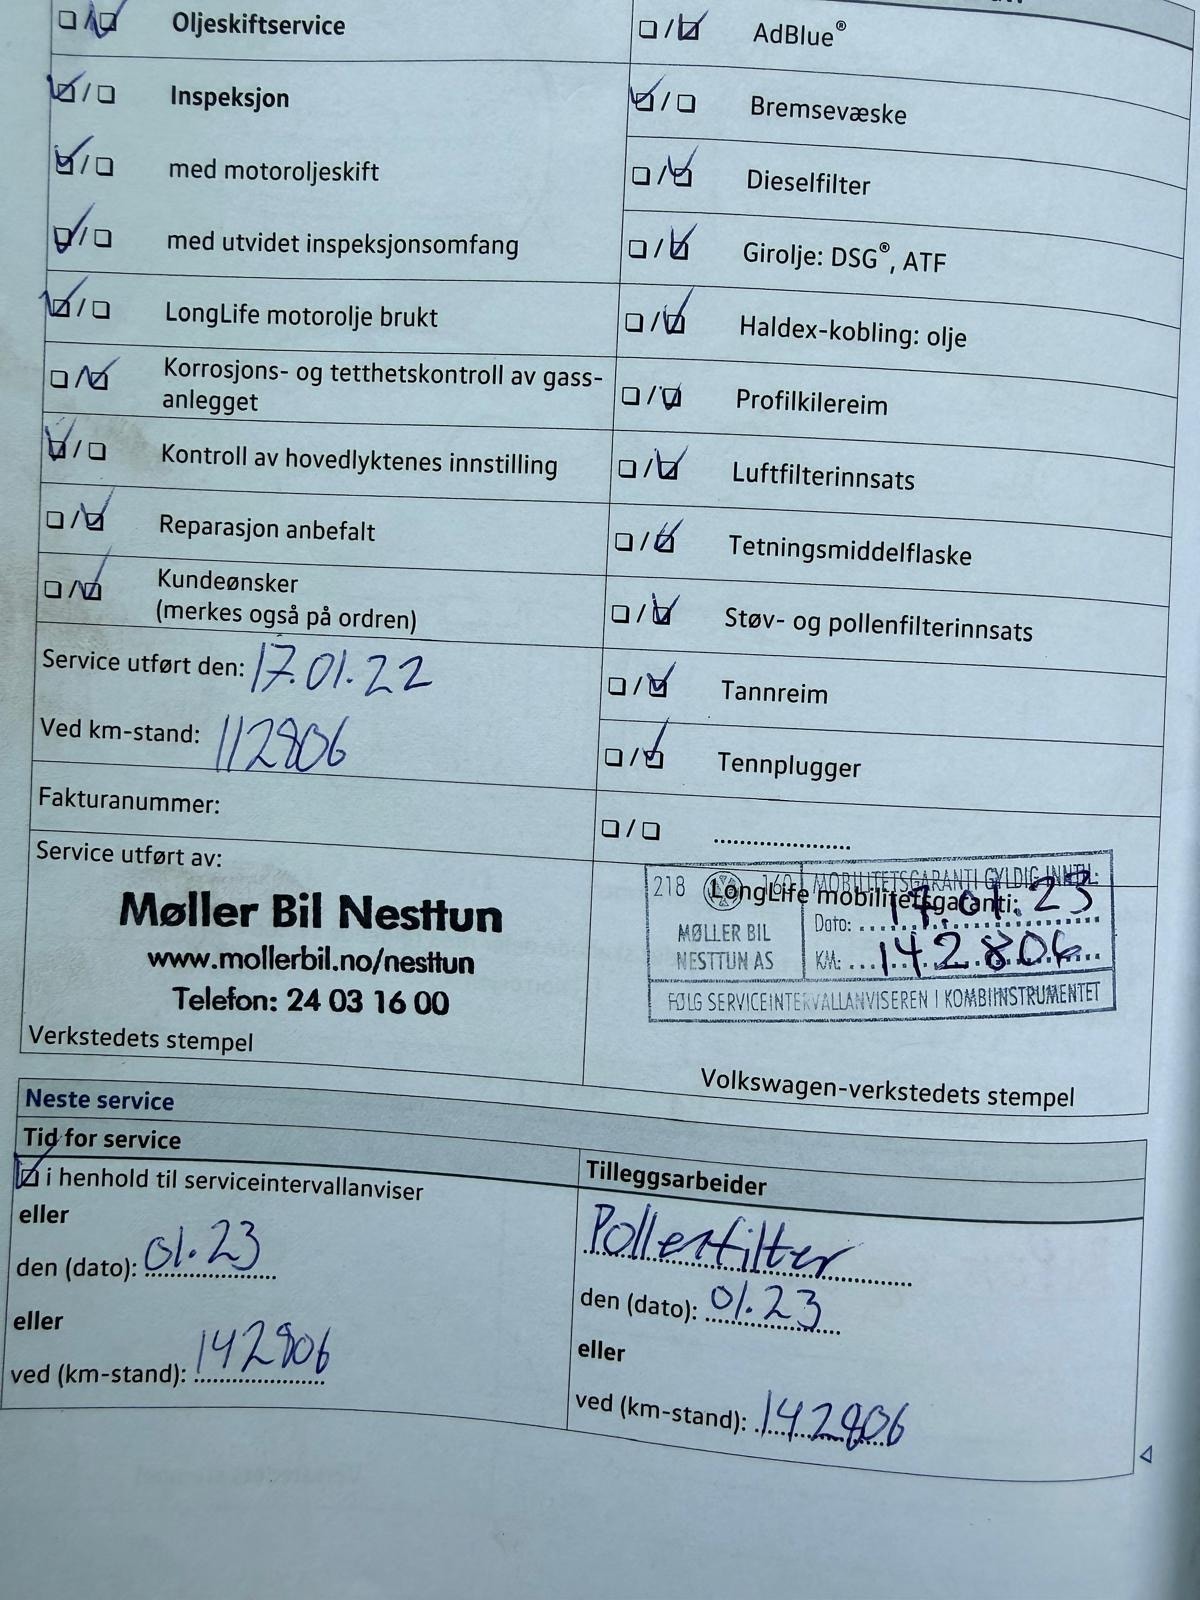 ☐/☑ Oljeskiftservice
☑/☐ Inspeksjon
☑/☐ med motoroljeskift
☑/☐ med utvidet inspeksjonsomfang
☑/☐ LongLife motorolje brukt
☐/☑ Korrosjons- og tetthetskontroll av gass-
anlegget
☑/☐ Kontroll av hovedlyktenes innstilling
☐/☑ Reparasjon anbefalt
☐/☑ Kundeønsker
(merkes også på ordren)
Service utført den: 17.01.22
Ved km-stand: 112806
Fakturanummer:
Service utført av:
Møller Bil Nesttun
www.mollerbil.no/nesttun
Telefon: 24 03 16 00
Verkstedets stempel
☐/☑ AdBlue®
☑/☐ Bremsevæske
☐/☑ Dieselfilter
☐/☑ Girolje: DSG®, ATF
☐/☑ Haldex-kobling: olje
☐/☑ Profilkilereim
☐/☑ Luftfilterinnsats
☐/☑ Tetningsmiddelflaske
☐/☑ Støv- og pollenfilterinnsats
☐/☑ Tannreim
☐/☑ Tennplugger
☐/☐ ....................
LongLife mobilitetsgaranti:
218 160
MØLLER BIL
NESTTUN AS
MOBILITETSGARANTI GYLDIG INNTIL:
Dato: 17.01.23
KM: 142806
FØLG SERVICEINTERVALLANVISEREN I KOMBIINSTRUMENTET
Volkswagen-verkstedets stempel
Neste service
Tid for service
☑ i henhold til serviceintervallanviser
eller
den (dato): 01.23
eller
ved (km-stand): 142806
Tilleggsarbeider
Pollenfilter
den (dato): 01.23
eller
ved (km-stand): 142806